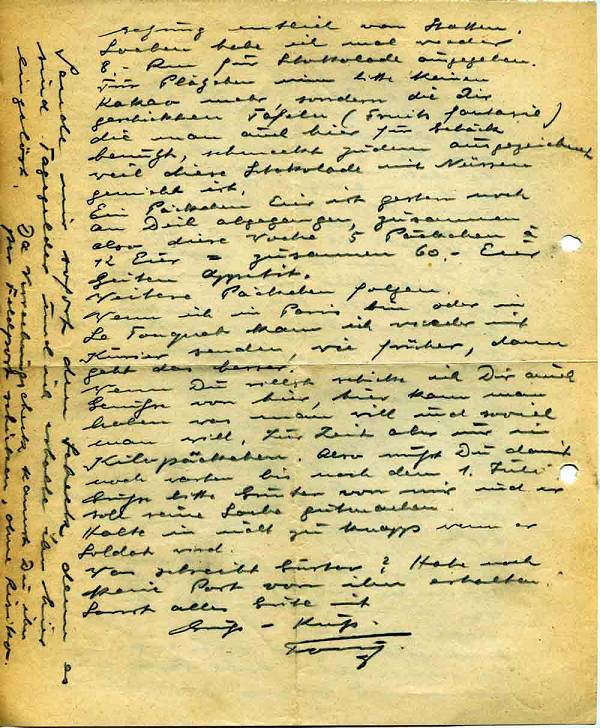 entlud von Stollen.
Soeben habe ich mal wieder
8.- Rm für Schokolade ausgegeben.
Für Plägchen nimm bitte keinen
Kakao mehr, sondern die Dir
geschickten Tafeln (Fruits fantaisie)
die man auch hier für Gebäck
benügt, schmeckt zudem ausgezeichnet
weil diese Schokolade mit Nüssen
gemischt ist.
Ein Päckchen Eier ist gestern noch
an Dich abgegangen, zusammen
also diese Woche 5 Päckchen à
12 Eier = zusammen 60.- Eier
Guten Appetit.
Weitere Päckchen folgen.
Wenn ich in Paris bin oder in
Le Touquet kann ich wieder mit
Kurier senden, wie früher, dann
geht das besser.
Wenn Du willst schicke ich Dir auch
von hier, hier kann man
haben was man will und soviel
man will. Zur Zeit aber nur in
Kilopäckchen. Also mußt Du damit
noch warten bis nach dem 1. Juli
Grüße bitte Günter von mir und er
soll seine Sache gutmachen.
Halte ihn nicht zu knapp wenn er
Soldat wird.
Was schreibt Gustav? Habe noch
keine Post von ihm erhalten.
Sonst alles Gute mit
Gruß - Kuß.
Sende mir sofort den Scheck, denn es
sind Tagegelder und ich erhalte ihn hier
eingelöst. Da Verrechnungscheck kannst Du ihn
per Feldpost schicken, ohne Risiko.